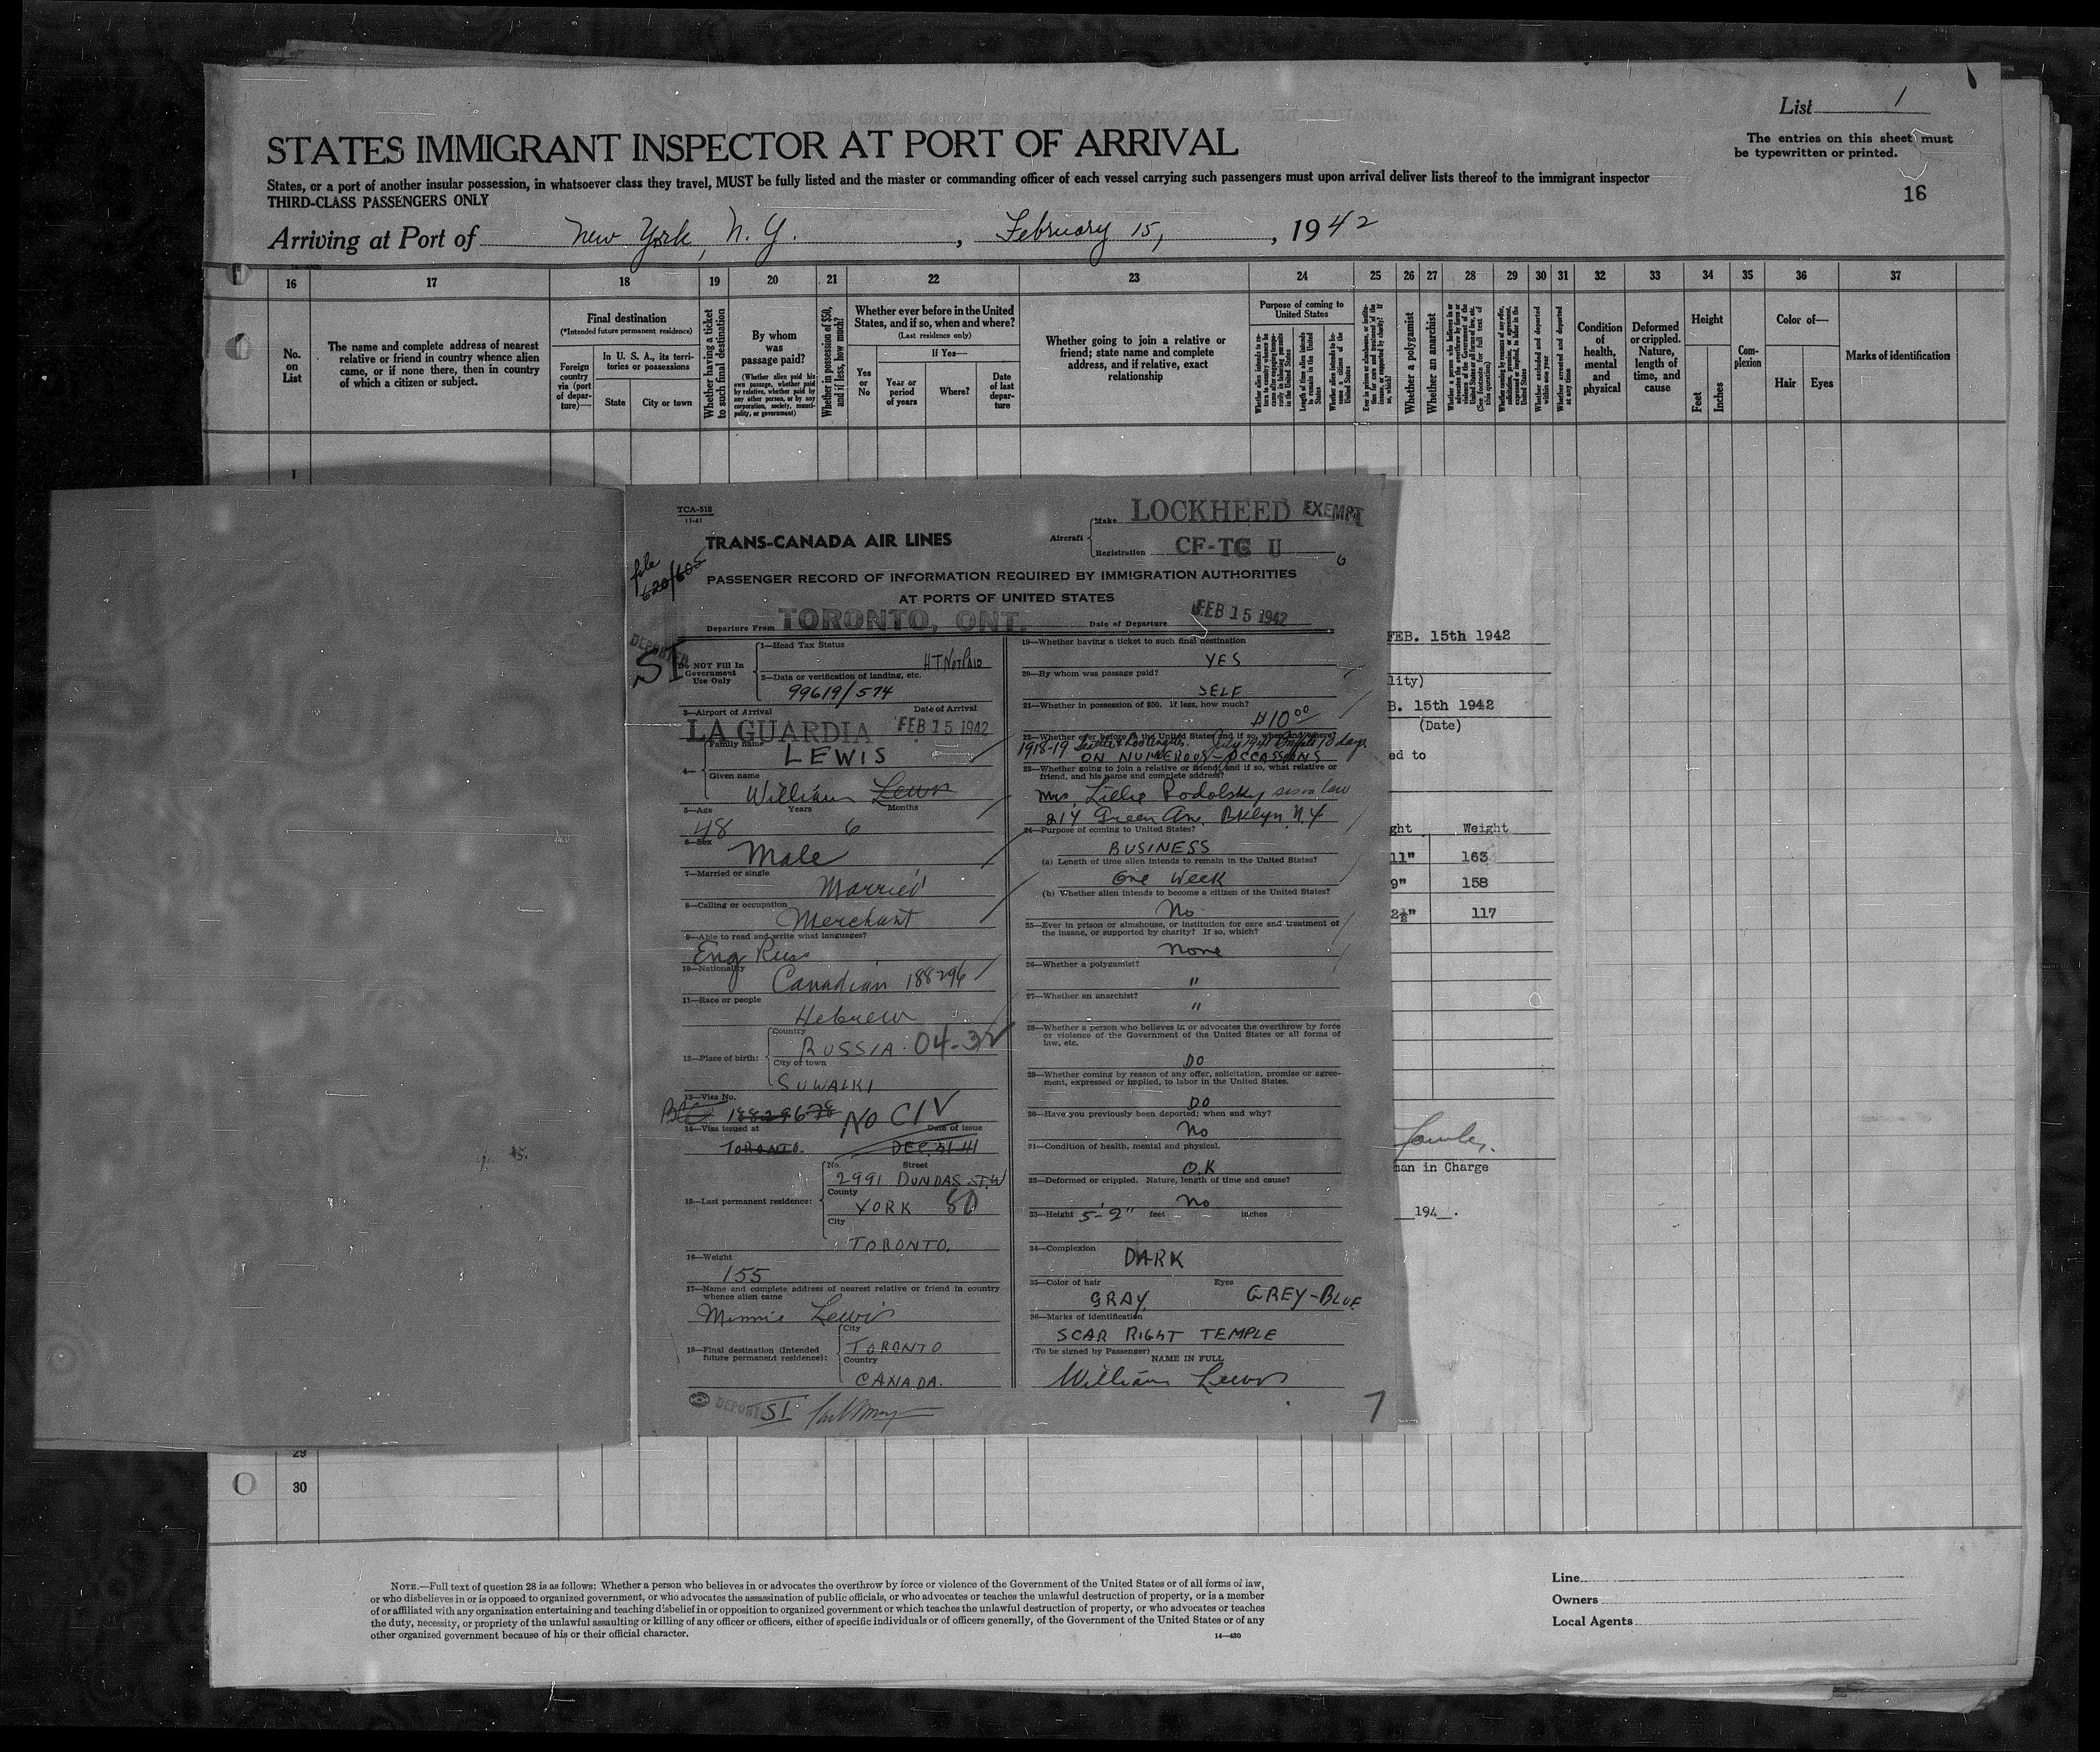 List 1
The entries on this sheet must
be typewritten or printed.
16
STATES IMMIGRANT INSPECTOR AT PORT OF ARRIVAL
States, or a port of another insular possession, in whatsoever class they travel, MUST be fully listed and the master or commanding officer of each vessel carrying such passengers must upon arrival deliver lists thereof to the immigrant inspector
THIRD-CLASS PASSENGERS ONLY
Arriving at Port of New York, N.Y. , February 15, , 1942
16 17 18 19 20 21 22 23 24 25 26 27 28 29 30 31 32 33 34 35 36 37
No.
on
List
The name and complete address of nearest
relative or friend in country whence alien
came, or if none there, then in country
of which a citizen or subject.
Final destination
(*Intended future permanent residence)
Foreign
country
via (port
of depar-
ture)—
In U. S. A., its terri-
tories or possessions
State
City or town
Whether having a ticket
to such final destination
By whom
was
passage paid?
(Whether alien paid his
own passage, whether paid
by relative, whether paid by
any other person, or by any
corporation, society, munici-
pality, or government)
Whether in possession of $50,
and if less, how much?
Whether ever before in the United
States, and if so, when and where?
(Last residence only)
Yes
or
No
If Yes—
Year or
period
of years
Where?
Date
of last
depar-
ture
Whether going to join a relative or
friend; state name and complete
address, and if relative, exact
relationship
Purpose of coming to
United States
Whether a polygamist
Whether an anarchist
Condition
of
health,
mental
and
physical
Deformed
or crippled.
Nature,
length of
time, and
cause
Height
Feet
Inches
Com-
plexion
Color of—
Hair
Eyes
Marks of identification
1
TCA-518
11-41
TRANS-CANADA AIR LINES
Aircraft
Make LOCKHEED EXEMPT
Registration CF-TC U
6
file
620/605
PASSENGER RECORD OF INFORMATION REQUIRED BY IMMIGRATION AUTHORITIES
AT PORTS OF UNITED STATES
Departure From TORONTO, ONT. Date of Departure FEB 15 1942
DEPORTED
SI
Do NOT Fill In
Government
Use Only
1—Head Tax Status
HT Not Paid
2—Data or verification of landing, etc.
99619/574
3—Airport of Arrival Date of Arrival
LA GUARDIA FEB 15 1942
4—
Family name
LEWIS
Given name
William Lewis
5—Age Years Months
48 6
6—Sex
Male
7—Married or single
Married
8—Calling or occupation
Merchant
9—Able to read and write what languages?
Eng Russ
10—Nationality
Canadian 188296
11—Race or people
Hebrew
12—Place of birth:
Country
RUSSIA. 04-32
City of town
SUWALKI
13—Visa No.
NO CIV
14—Visa issued at Date of issue
TORONTO. DEC. 31 41
15—Last permanent residence:
No. Street
2991 DUNDAS ST. W
County
YORK 80
City
TORONTO.
16—Weight
155
17—Name and complete address of nearest relative or friend in country
whence alien came
Minnie Lewis
18—Final destination (Intended
future permanent residence):
City
TORONTO
Country
CANADA.
DEPORTED SI
19—Whether having a ticket to such final destination
YES
20—By whom was passage paid?
SELF
21—Whether in possession of $50. If less, how much?
$10 00
22—Whether ever before in the United States, and if so, when and where?
1918-19 Seattle & Los Angeles. July 1941 10 days
ON NUMEROUS OCCASSIONS
23—Whether going to join a relative or friend, and if so, what relative or
friend, and his name and complete address?
Mrs. Lillie Podolsky sis in law
214 Green Ave. Bklyn N.Y
24—Purpose of coming to United States?
BUSINESS
(a) Length of time alien intends to remain in the United States?
One Week
(b) Whether alien intends to become a citizen of the United States?
No
25—Ever in prison or almshouse, or institution for care and treatment of
the insane, or supported by charity? If so, which?
None
26—Whether a polygamist?
"
27—Whether an anarchist?
"
28—Whether a person who believes in or advocates the overthrow by force
or violence of the Government of the United States or all forms of
law, etc.
DO
29—Whether coming by reason of any offer, solicitation, promise or agree-
ment, expressed or implied, to labor in the United States.
DO
30—Have you previously been deported; when and why?
No
31—Condition of health, mental and physical.
O.K
32—Deformed or crippled. Nature, length of time and cause?
No
33—Height 5'-2" feet inches
34—Complexion
DARK
35—Color of hair Eyes
GRAY. GREY-BLUE
36—Marks of identification
SCAR RIGHT TEMPLE
(To be signed by Passenger)
NAME IN FULL
William Lewis
7
FEB. 15th 1942
lity)
B. 15th 1942
(Date)
ed to
ght Weight
11" 163
9" 158
2½" 117
man in Charge
194 .
29
30
NOTE.—Full text of question 28 is as follows: Whether a person who believes in or advocates the overthrow by force or violence of the Government of the United States or of all forms of law,
or who disbelieves in or is opposed to organized government, or who advocates the assassination of public officials, or who advocates or teaches the unlawful destruction of property, or is a member
of or affiliated with any organization entertaining and teaching disbelief in or opposition to organized government or which teaches the unlawful destruction of property, or who advocates or teaches
the duty, necessity, or propriety of the unlawful assaulting or killing of any officer or officers, either of specific individuals or of officers generally, of the Government of the United States or of any
other organized government because of his or their official character.
14—430
Line
Owners
Local Agents